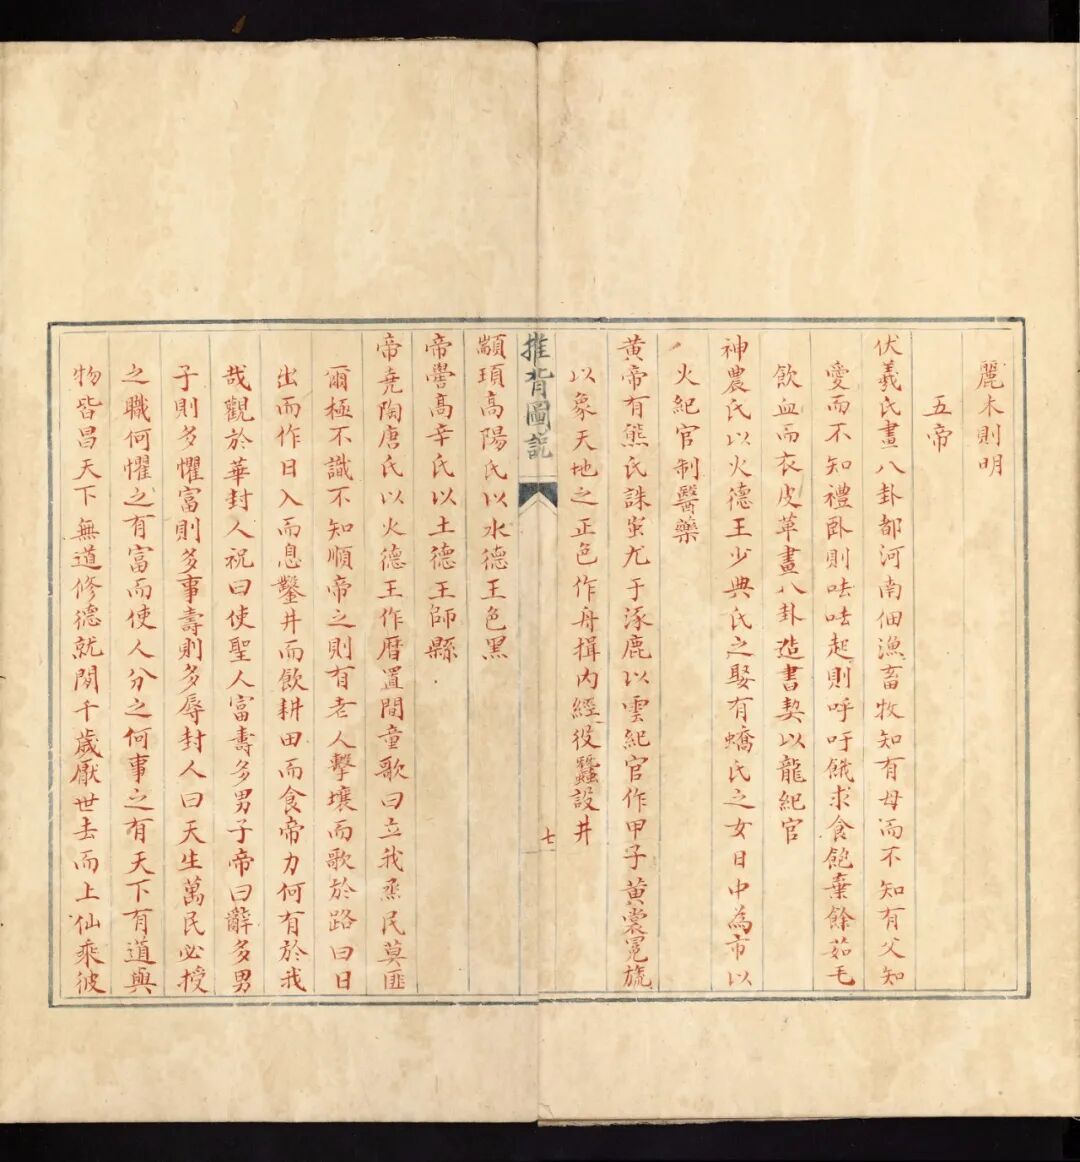 麗末則明
五帝
伏羲氏畫八卦都河南佃漁畜牧知有母而不知有父知
愛而不知禮卧則呿呿起則呼吁餓求食飽棄餘茹毛
飲血而衣皮革畫八卦造書契以龍紀官
神農氏以火德王少典氏之娶有蟜氏之女日中為市以
火紀官制醫藥
黃帝有熊氏誅蚩尤于涿鹿以雲紀官作甲子黃裳冕旒
以象天地之正色作舟揖內經役蠶設井
推背圖說
七
顓頊高陽氏以水德王色黑
帝嚳高辛氏以土德王師縣
帝堯陶唐氏以火德王作曆置閏童歌曰立我烝民莫匪
爾極不識不知順帝之則有老人擊壤而歌於路曰日
出而作日入而息鑿井而飲耕田而食帝力何有於我
哉觀於華封人祝曰使聖人富壽多男子帝曰辭多男
子則多懼富則多事壽則多辱封人曰天生萬民必授
之職何懼之有富而使人分之何事之有天下有道與
物皆昌天下無道修德就閒千歲厭世去而上仙乘彼